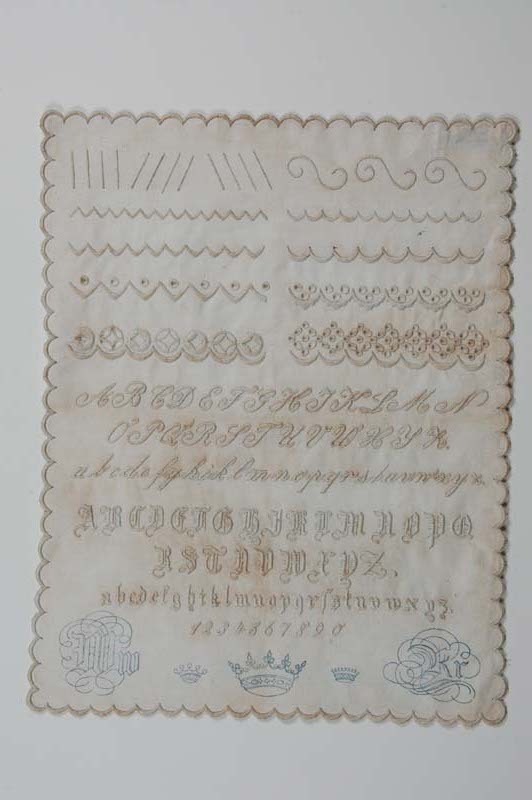 A B C D E F G H I K L M N
O P Q R S T U V W X Y Z.
a b c d e f g h i k l m n o p q r s t u v w x y z
A B C D E F G H I K L M N O P Q
R S T U V W X Y Z.
a b c d e f g h i k l m n o p q r s s t u v w x y z.
1 2 3 4 5 6 7 8 9 0